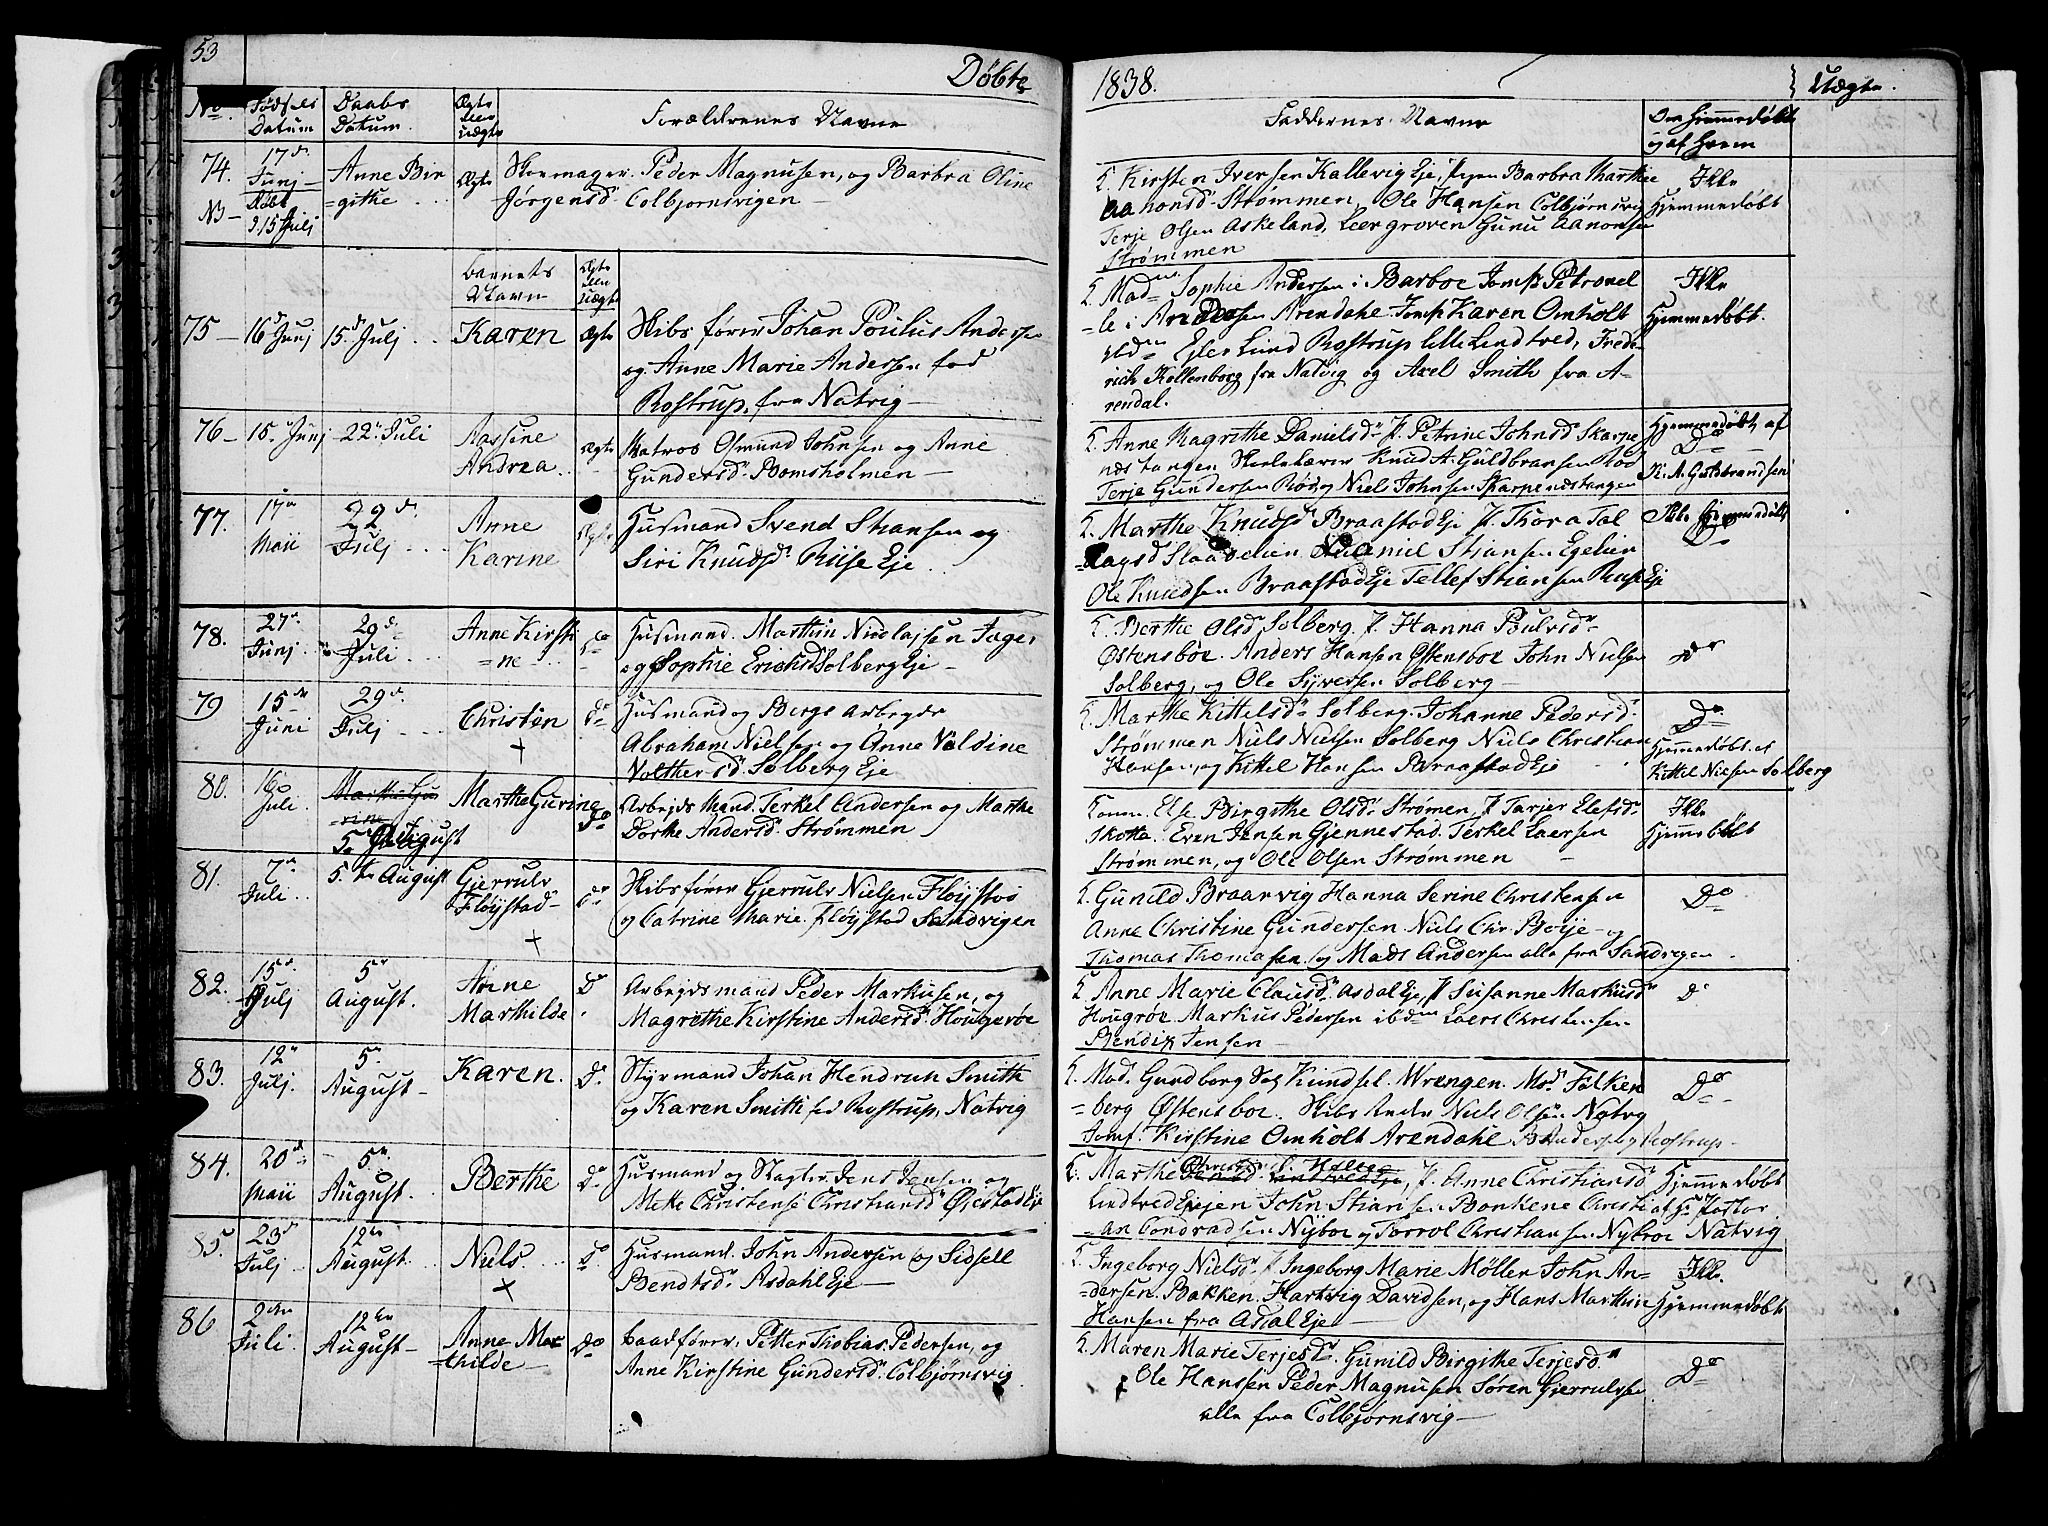 53
Døbte
1838.
Uægte.
No. Fødsels Datum Daabs Datum. Ægte eller uægte Forældrenes Navne
Faddernes Navne Om Hjemmedøbt og af Hvem
74. 17de Junj Døbt d. 15 Julj NB
Anne Bir
=githe
Ægte
Skomager Peder Magnusen, og Barbra Oline
Jørgensd. Colbjørnsvigen
Kirsten Iversen Kallevig Eje, Pigen Barbra Marthe
Aanonsd. Strømmen, Ole Hansen Colbjørnsvig
Terje Olsen Askeland, Leergroven Gunu Aanonsen
Strømmen
Ikke
Hjemmedøbt
Barnets Navn Ægte eller uægte
75 16de Junj 15de Julj Karen Ægte
Skibsfører Johan Poulus Andersen
og Anne Marie Andersen fød
Rostrup, fra Natvig
Mad. Sophie Andersen i Barboe Jomf. Petronel
=le i Andersen Arendahl. Jomf. Karen Omholt
Eiler Lund Rostrup lille Lindtved, Frede
rich Kallenborg fra Natvig og Axel Smith fra A-
rendal.
Ikke
Hjemmedøbt.
76 15de Junj 22de Juli Aassine
Andrea Ægte
Matros Osmund Johnsen og Anne
Gundersd. Bomsholmen
Anne Magrethe Danielsd. P. Petrine Johnsd. Skarpe
næstangen Skolelærer Knud A. Guldbransen Rød
Terje Gundersen Rød og Niels Johnsen Skarpenæstangen
Hjemmedøbt af
Do
K. A. Guldbrandsen
77. 17de Maii 22de Julj Anne
Karine Ægte
Husmand Svend Stiansen og
Siri Knudsd. Riise Eje
Marthe Knudsd. Braastad Eje P. Thora Tal
=lagsd. Staaelien Daniel Stiansen Egelien
Ole Knudsen Braastad Eje Tellef Stiansen Riise Eje
Ikke Hjemmedøbt
Do
78. 27de Junj 29de Juli Anne Kirsti
=ne Do
Husmand. Marthin Nicolajsen Jæger
og Sophie Erichsd. Solberg Eje
Berthe Olsd. Solberg. P. Hanna Poulsd.
Østensboe. Anders Hansen Østensboe John Nielsen
Solberg, og Ole Syversen Solberg
Do
79 15de Juni 29de Julj Christen Do
Husmand og Bergs Arbeyder
Abraham Nielsen og Anne Valdine
Volthersd. Solberg Eje
Marthe Kittelsd. Solberg. Johanne Pedersd.
Strømmen Niels Nielsen Solberg Niels Christian
Hansen, og Kittel Hansen Braastad Eje
Do
Hjemmedøbt af
Kittel Nielsen Solberg
80. 16 Juli. Marthe Gu
=rine
5te August Marthe Gurine Do
Arbejdsmand. Terkel Andersen og Marthe
Dorthe Andersd. Strømmen
Konen Else Birgithe Olsd. Strømen, P. Tarjer Elefsd.
Skotta. Even Jensen Gjennestad. Terkel Laersen
Strømmen, og Ole Olsen Strømmen
Ikke
Hjemmedøbt
81. 7de Juli 5te August Gjerrulv
Fløjstad Do
Skibsfører Gjerrulv Nielsen Fløjstad
og Catrine Marie Fløjstad Sandvigen
Gunild Braarvig Hanna Serine Christensen
Anne Christine Gundersen Niels Chr. Boije og
Thomas Thomasen og Mads Andersen alle fra Sandvigen
Do
82. 15de Julj 5te August. Anne
Marthilde Do
Arbejdsmand Peder Markusen, og
Magrethe Kirstine Andersd. Hougerøe
Anne Marie Clausd. Asdal Eje, P. Susanne Markusd.
Hougrøe. Markus Pedersen ibdm Laers Christensen
Bendix Jensen
Do
83. 12te Julj. 5te August Karen. Do
Styrmand Johan Hendrich Smith
og Karen Smith fød Rostrup, Natvig
Mad. Gundborg Kundsel. Wrengen. Md. Falken
=berg Østensboe. Skibs Andr. Niels Olsen Natvig
Jomf. Kirstine Omholt Arendahl Andersen og Rostrup
Do
84. 20de Maii 5te August. Berthe Do
Husmand og Slagter Jens Jensen og
Mette Christense Christiansd. Øjestad Eje
Marthe Jensd. Lindtved Eje, P. Anne Christiansd.
Lindtved Ejen John Stiansen Bonkene Christi
=an Condradsen Nyboe og Torrol Christiansen Nyboe
Hjemmedøbt
af Hr. Pastor
Natvig
85. 23de Julj 12te August. Niels. Do
Husmand. John Andersen og Sidsell
Bendtsd. Asdahl Eje
Ingeborg Nielsd. P. Ingeborg Marie Møller John An=
=dersen. Bakken. Hartvig Davidsen, og Hans Marthin
Hansen fra Asdal Eje
Ikke
Hjemmedøbt
86 2den Juli 12te August Anne Mar
=thilde Do
Baadfører, Petter Thobias Pedersen, og
Anne Kirstine Gundersd. Colbjørnsvig
Maren Marie Terjesd. Gunild Birgithe Terjesd.
Ole Hansen Peder Magnusen Søren Gjerrulvsen
alle fra Colbjørnsvig
Do